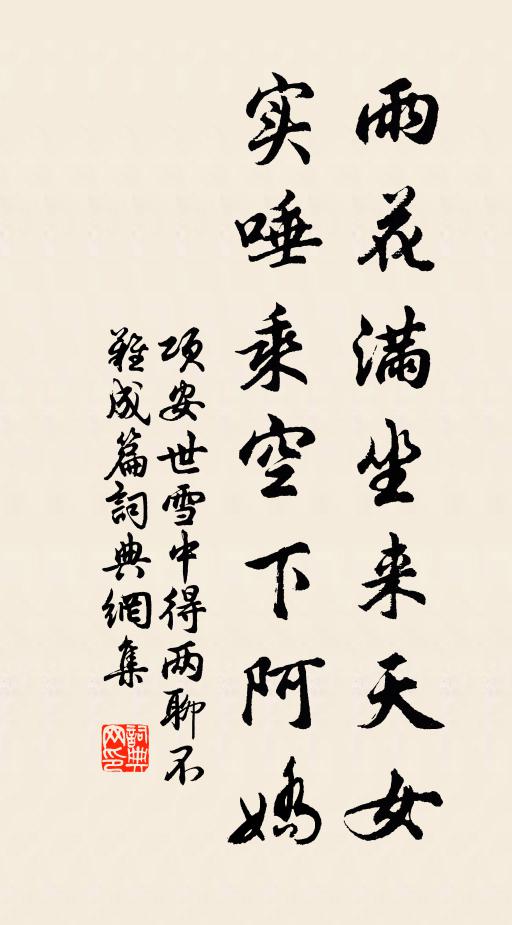 雨花满坐来天女
实唾乘空下阿嬌
项安世雪中得两聊不
難成篇詞典網集
詞典網印